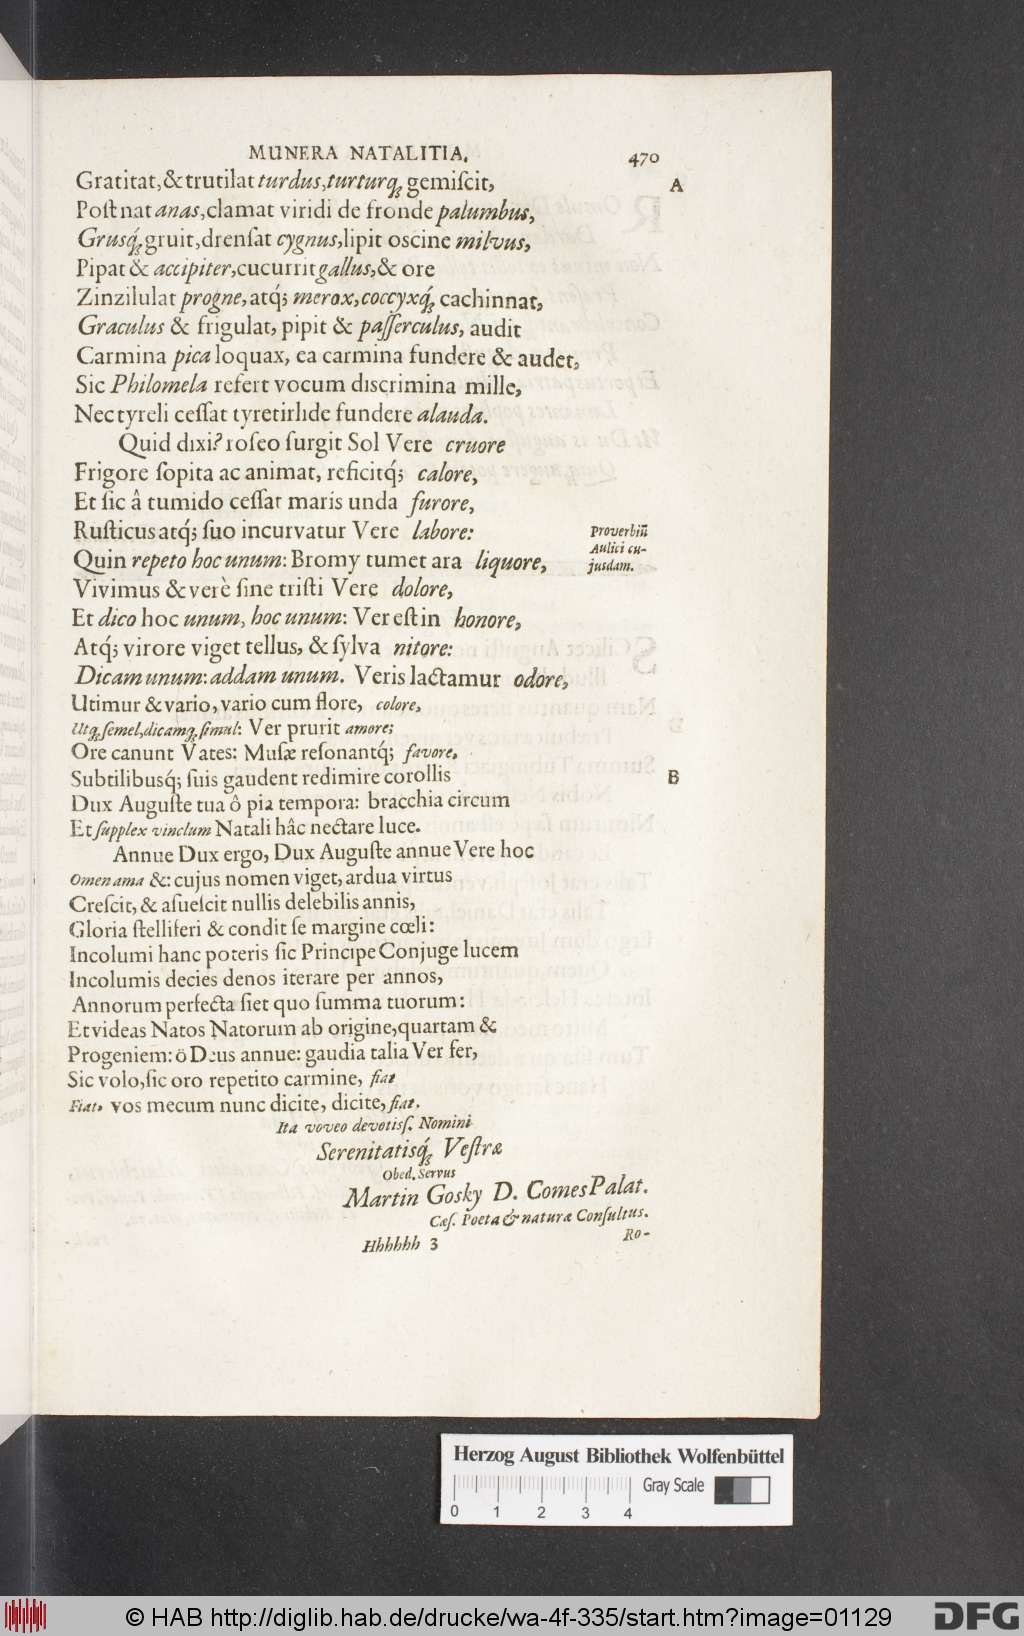 MUNERA NATALITIA. 470
Gratitat, & trutilat turdus, turturq́ꝫ gemiſcit, A
Poſt nat anas, clamat viridi de fronde palumbus,
Grusq́ꝫ gruit, drenſat cygnus, lipit oscine milvus,
Pipat & accipiter, cucurrit gallus, & ore
Zinzilulat progne, atq́; merox, coccyxq́ꝫ cachinnat,
Graculus & frigulat, pipit & paſſerculus, audit
Carmina pica loquax, ea carmina fundere & audet,
Sic Philomela refert vocum discrimina mille,
Nec tyreli ceſſat tyretirlide fundere alauda.
Quid dixi? roſeo ſurgit Sol Vere cruore
Frigore ſopita ac animat, reficitq́; calore,
Et ſic â tumido ceſſat maris unda furore,
Ruſticus atq́; ſuo incurvatur Vere labore:
Proverbiū
Aulici cu-
jusdam.
Quin repeto hoc unum: Bromy tumet ara liquore,
Vivimus & verè ſine triſti Vere dolore,
Et dico hoc unum, hoc unum: Ver eſt in honore,
Atq́; virore viget tellus, & ſylva nitore:
Dicam unum: addam unum. Veris lactamur odore,
Utimur & vario, vario cum flore, colore,
Utqꝫ ſemel, dicamqꝫ ſimul: Ver prurit amore;
Ore canunt Vates: Muſæ reſonantq́; favore,
Subtilibusq́; ſuis gaudent redimire corollis B
Dux Auguſte tua ô pia tempora: bracchia circum
Et ſupplex vinclum Natali hâc nectare luce.
Annue Dux ergo, Dux Auguſte annue Vere hoc
Omen ama &: cujus nomen viget, ardua virtus
Creſcit, & aſueſcit nullis delebilis annis,
Gloria ſtelliferi & condit ſe margine cœli:
Incolumi hanc poteris ſic Principe Conjuge lucem
Incolumis decies denos iterare per annos,
Annorum perfecta ſiet quo ſumma tuorum:
Et videas Natos Natorum ab origine, quartam &
Progeniem: ô Deus annue: gaudia talia Ver fer,
Sic volo, ſic oro repetito carmine, fiat
Fiat, vos mecum nunc dicite, dicite, fiat.
Ita voveo devotiſſ. Nomini
Serenitatisq́ꝫ Veſtræ
Obed. Servus
Martin Gosky D. Comes Palat.
Cæſ. Poeta & naturæ Conſultus.
Hhhhhh 3 Ro-
Herzog August Bibliothek Wolfenbüttel
Gray Scale
0 1 2 3 4
© HAB http://diglib.hab.de/drucke/wa-4f-335/start.htm?image=01129
DFG